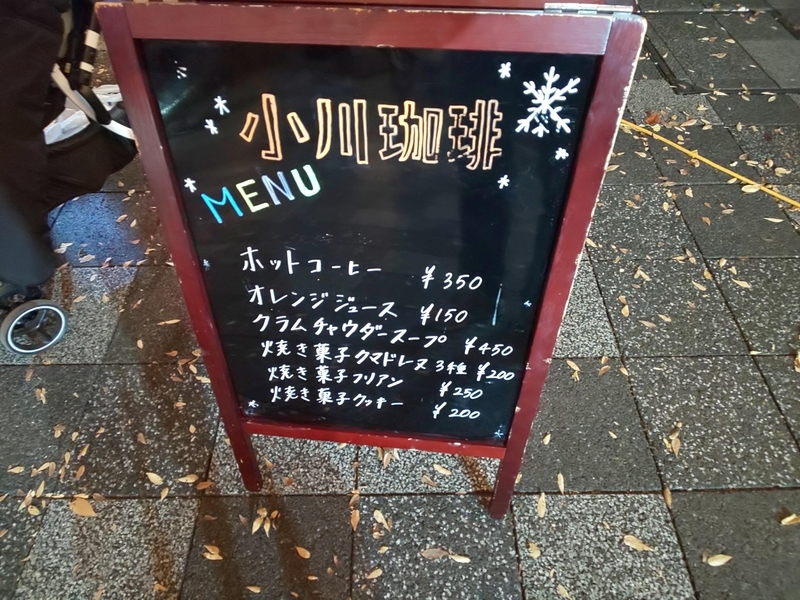 小川珈琲
MENU
ホットコーヒー ¥350
オレンジジュース ¥150
クラムチャウダースープ ¥450
焼き菓子クマドレヌ 3種 ¥200
焼き菓子フリアン ¥250
焼き菓子クッキー ¥200